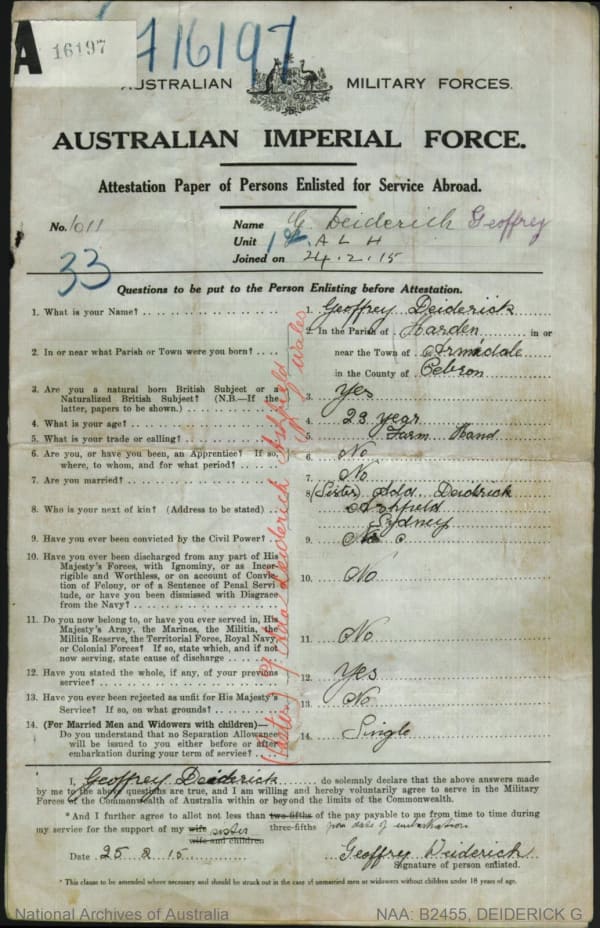 A
16197
16197
AUSTRALIAN MILITARY FORCES.
AUSTRALIAN IMPERIAL FORCE.
Attestation Paper of Persons Enlisted for Service Abroad.
No. 1011
Name G. Deiderick Geoffrey
Unit 1st. A L H
Joined on 24.2.15
33
Questions to be put to the Person Enlisting before Attestation.
1. What is your Name? 1. Geoffrey Deiderick
2. In or near what Parish or Town were you born? 2. In the Parish of Harden in or
near the Town of Armidale
in the County of
3. Are you a natural born British Subject or a
Naturalized British Subject? (N.B.—If the
latter, papers to be shown.) 3. Yes
4. What is your age? 4. 23 year
5. What is your trade or calling? 5. Farm Hand
6. Are you, or have you been, an Apprentice? If so,
where, to whom, and for what period? 6. No
7. Are you married? 7. No
8. Who is your next of kin? (Address to be stated) 8 (Sister) Add Deidrick
Ashfield
Sydney
9. Have you ever been convicted by the Civil Power? 9. No
10. Have you ever been discharged from any part of His
Majesty's Forces, with Ignominy, or as Incor-
rigible and Worthless, or on account of Convic-
tion of Felony, or of a Sentence of Penal Servi-
tude, or have you been dismissed with Disgrace
from the Navy? 10. No
11. Do you now belong to, or have you ever served in, His
Majesty's Army, the Marines, the Militia, the
Militia Reserve, the Territorial Force, Royal Navy,
or Colonial Forces? If so, state which, and if not
now serving, state cause of discharge 11. No
12. Have you stated the whole, if any, of your previous
service? 12. Yes
13. Have you ever been rejected as unfit for His Majesty's
Service? If so, on what grounds? 13. No
14. (For Married Men and Widowers with children)—
Do you understand that no Separation Allowance
will be issued to you either before or after
embarkation during your term of service? 14. Single
(Sister) Deiderich Ashfield Wales
I, Geoffrey Deiderick do solemnly declare that the above answers made
by me to the above questions are true, and I am willing and hereby voluntarily agree to serve in the Military
Forces of the Commonwealth of Australia within or beyond the limits of the Commonwealth.
* And I further agree to allot not less than two-fifths of the pay payable to me from time to time during
three-fifths from date of embarkation
my service for the support of my wife sister
wife and children
Date 25 2 15 Geoffrey Deiderick
Signature of person enlisted.
* This clause to be amended where necessary and should be struck out in the case of unmarried men or widowers without children under 18 years of age.
National Archives of Australia NAA: B2455, DEIDERICK G